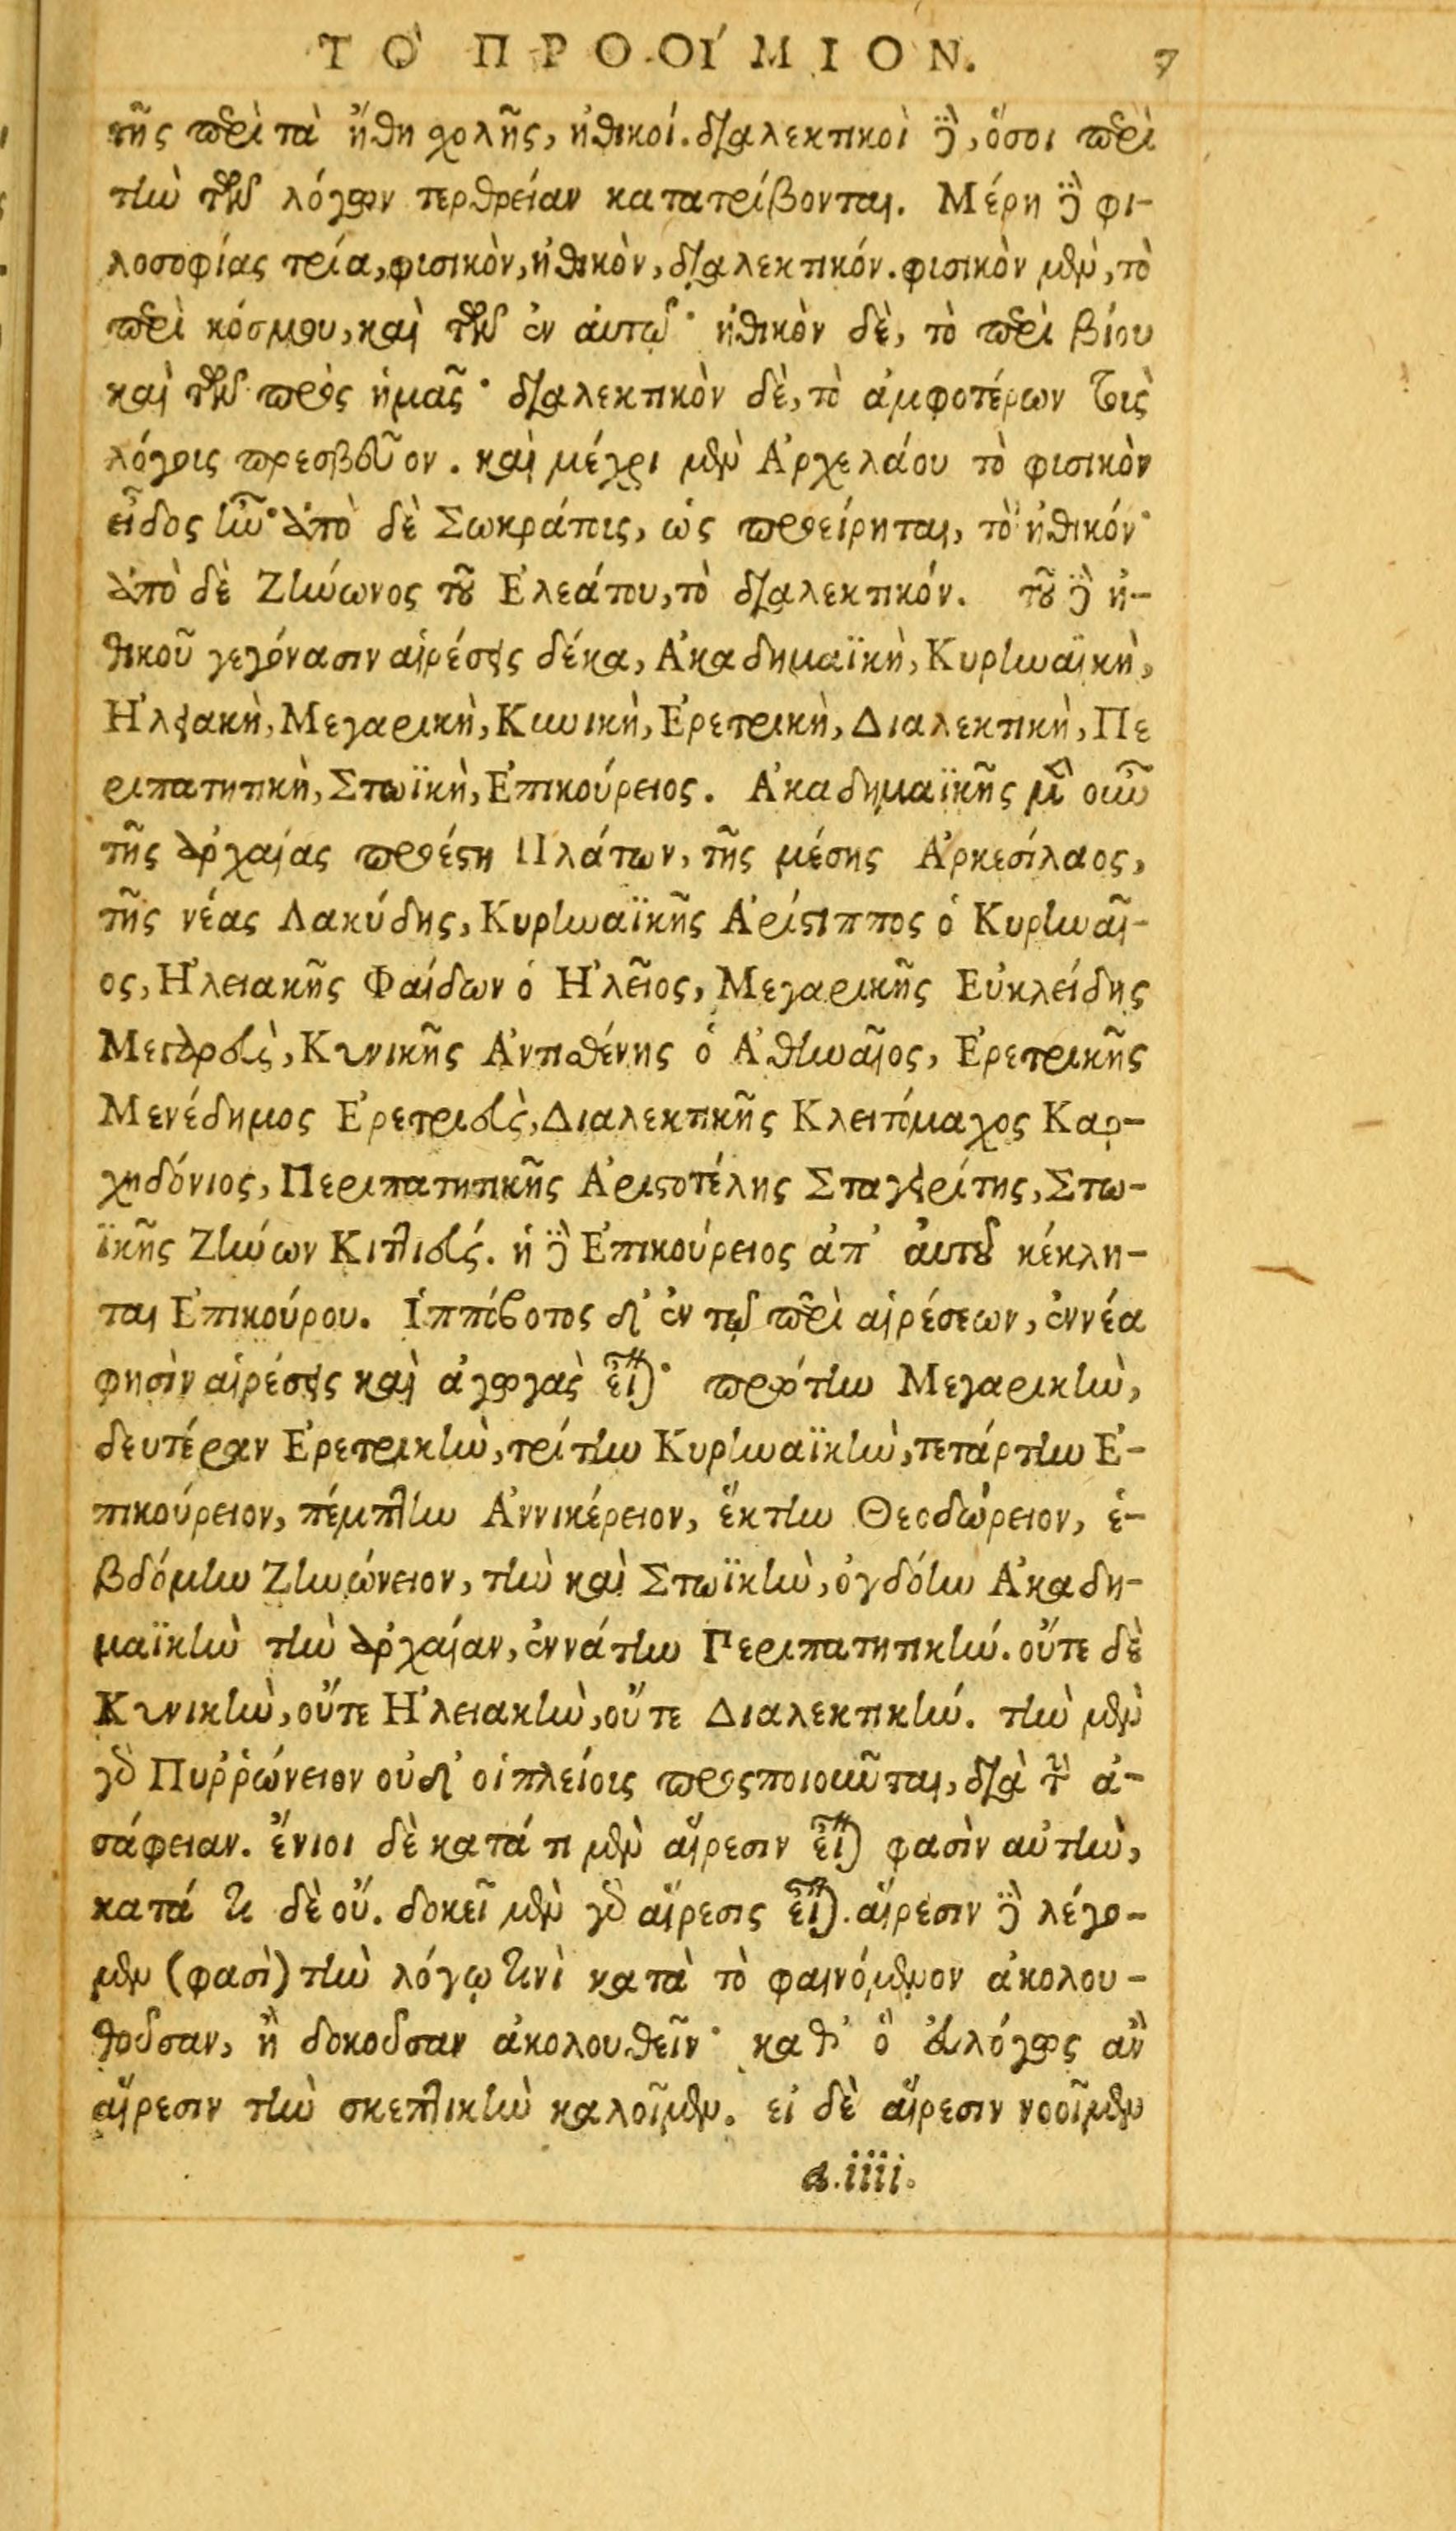 ΤῸ ΠΡΟΟΊΜΙΟΝ. 7
τῆς περὶ τὰ ἤθη χολῆς, ἠθικοί. διαλεκτικοὶ δὲ, ὅσοι περὶ
τὴν τῶν λόγων τερθρείαν κατατρίβονται. Μέρη δὲ φι-
λοσοφίας τρία, φισικὸν, ἠθικὸν, διαλεκτικόν. φισικὸν μὲν, τὸ
περὶ κόσμου, καὶ τῶν ἐν αὐτῷ· ἠθικὸν δὲ, τὸ περὶ βίου
καὶ τῶν πρὸς ἡμᾶς· διαλεκτικὸν δὲ, τὸ ἀμφοτέρων τοὺς
λόγοις πρεσβεῦον. καὶ μέχρι μὲν Ἀρχελάου τὸ φισικὸν
εἶδος ἦν· ἀπὸ δὲ Σωκράτοις, ὡς προείρηται, τὸ ἠθικόν·
ἀπὸ δὲ Ζήνωνος τοῦ Ἐλεάτου, τὸ διαλεκτικόν. τοῦ δὲ ἠ-
θικοῦ γεγόνασιν αἱρέσεις δέκα, Ἀκαδημαϊκὴ, Κυρηναϊκὴ,
Ἠλειακὴ, Μεγαρικὴ, Κυνικὴ, Ἐρετρικὴ, Διαλεκτικὴ, Πε
ριπατητικὴ, Στωϊκὴ, Ἐπικούρειος. Ἀκαδημαϊκῆς μὲν οὖν
τῆς ἀρχαίας προέστη Πλάτων, τῆς μέσης Ἀρκεσίλαος,
τῆς νέας Λακύδης, Κυρηναϊκῆς Ἀρίστιππος ὁ Κυρηναῖ-
ος, Ἠλειακῆς Φαίδων ὁ Ἠλεῖος, Μεγαρικῆς Εὐκλείδης
Μεγαρεὺς, Κυνικῆς Ἀντισθένης ὁ Ἀθηναῖος, Ἐρετρικῆς
Μενέδημος Ἐρετριεὺς, Διαλεκτικῆς Κλειτόμαχος Καρ-
χηδόνιος, Περιπατητικῆς Ἀριστοτέλης Σταγειρίτης, Στω-
ϊκῆς Ζήνων Κιτιεύς. ἡ δὲ Ἐπικούρειος ἀπ’ αὐτοῦ κέκλη-
ται Ἐπικούρου. Ἱππόβοτος δ’ ἐν τῷ περὶ αἱρέσεων, ἐννέα
φησὶν αἱρέσεις καὶ ἀγωγὰς εἶναι· πρώτην Μεγαρικὴν,
δευτέραν Ἐρετρικὴν, τρίτην Κυρηναϊκὴν, τετάρτην Ἐ-
πικούρειον, πέμπτην Ἀννικέρειον, ἕκτην Θεοδώρειον, ἑ-
βδόμην Ζηνώνειον, τὴν καὶ Στωϊκὴν, ὀγδόην Ἀκαδη-
μαϊκὴν τὴν ἀρχαίαν, ἐννάτην Περιπατητικήν. οὔτε δὲ
Κυνικὴν, οὔτε Ἠλειακὴν, οὔτε Διαλεκτικήν. τὴν μὲν
γὰρ Πυῤῥώνειον οὐδ’ οἱ πλείοις προσποιοῦνται, διὰ τὴν ἀ-
σάφειαν. ἔνιοι δὲ κατά τι μὲν αἵρεσιν εἶναι φασὶν αὐτὴν,
κατά τι δὲ οὔ. δοκεῖ μὲν γὰρ αἵρεσις εἶναι. αἵρεσιν δὲ λέγο-
μεν (φασὶ) τὴν λόγῳ τινὶ κατὰ τὸ φαινόμενον ἀκολου-
θοῦσαν, ἢ δοκοῦσαν ἀκολουθεῖν· καθ’ ὃ εὐλόγως ἂν
αἵρεσιν τὴν σκεπτικὴν καλοῖμεν. εἰ δὲ αἵρεσιν νοοῖμεν
a.iiii.